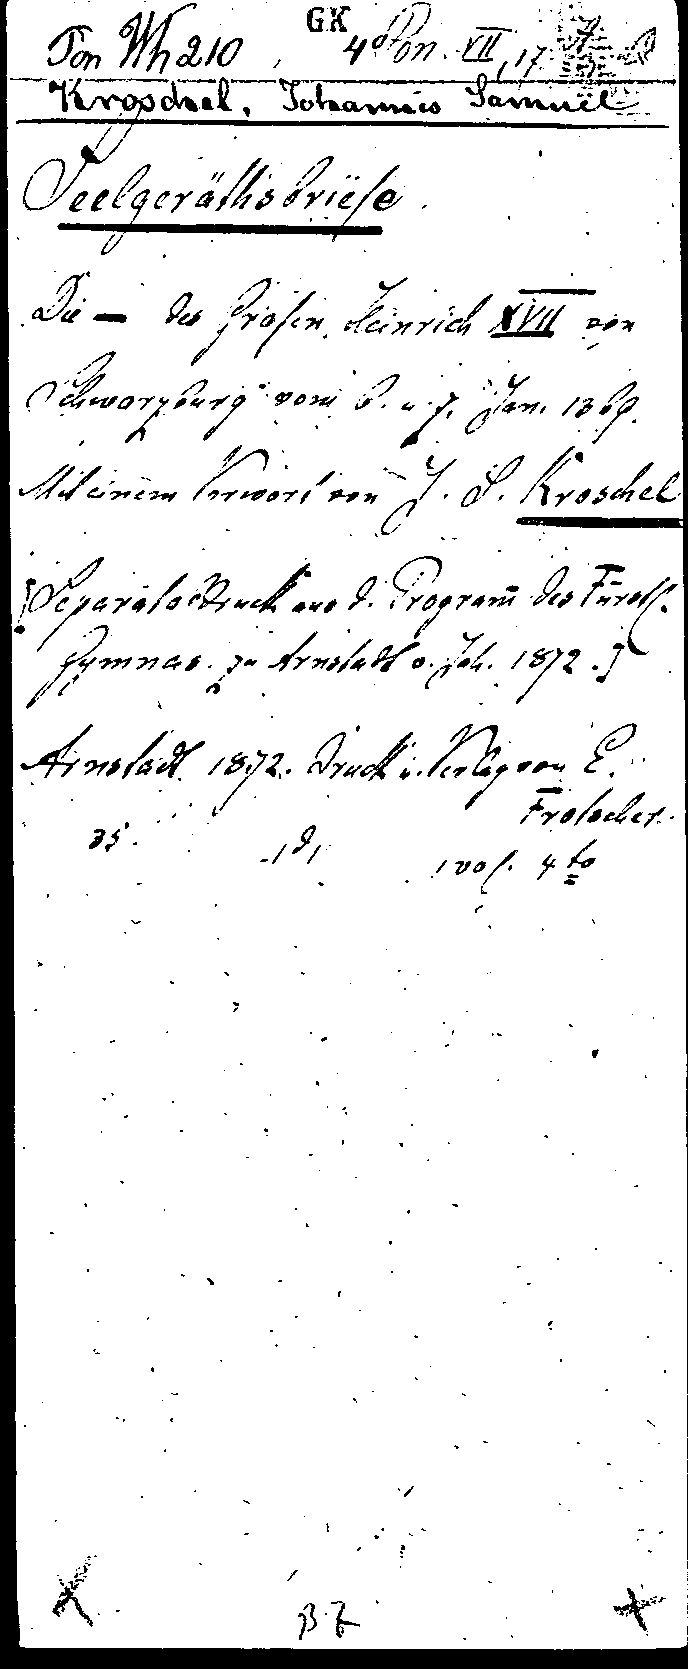 GK
Pon Wh 210, 4° Pon. VII, 17
Kroschel, Johannes Samuel
Seelgeräthsbriefe.
Die — des Grafen Heinrich XVII von
Schwarzburg vom 6. u. 7. Jan. 1369.
Mit einem Vorwort von J. S. Kroschel
[Separatabdruck aus d. Program̄ des Fürstl.
Gymnas. zu Arnstadt v. Joh. 1872.]
Arnstadt 1872. Druck u. Verlag von E.
Frotscher.
35. 1 vol. 4to
B.Z